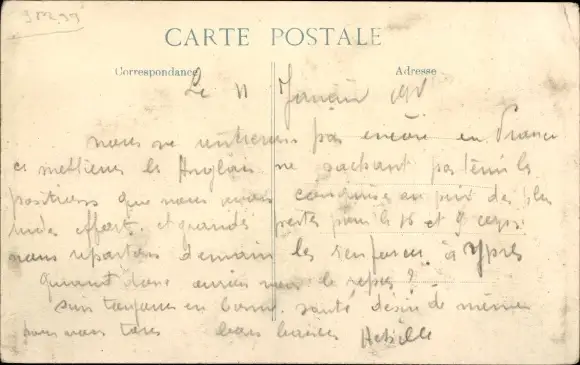 CARTE POSTALE
Correspondance
Adresse
Le 11 Janvier 191
nous ne rentrerons pas encore en France
ce mettieux les Anglais ne sachant pas tenir les
positions que nous avons conquises au prix des plus
rudes effort. et grandes pertes pour le 16 et 9 corps.
nous repartons demain les renforcer à Ypres
quand donc aurons nous le repos ?
suis toujours en bonne santé désire de même
pour vous tous bons baisers Achille